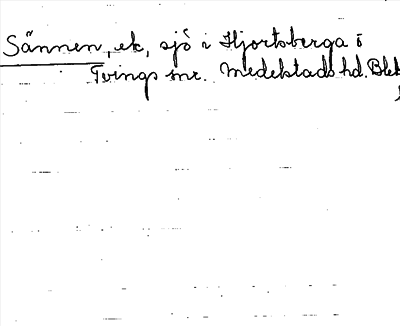 Sännen, ek, sjö i Hjortsberga o
Tvings snr. Medelstads hd. Blek